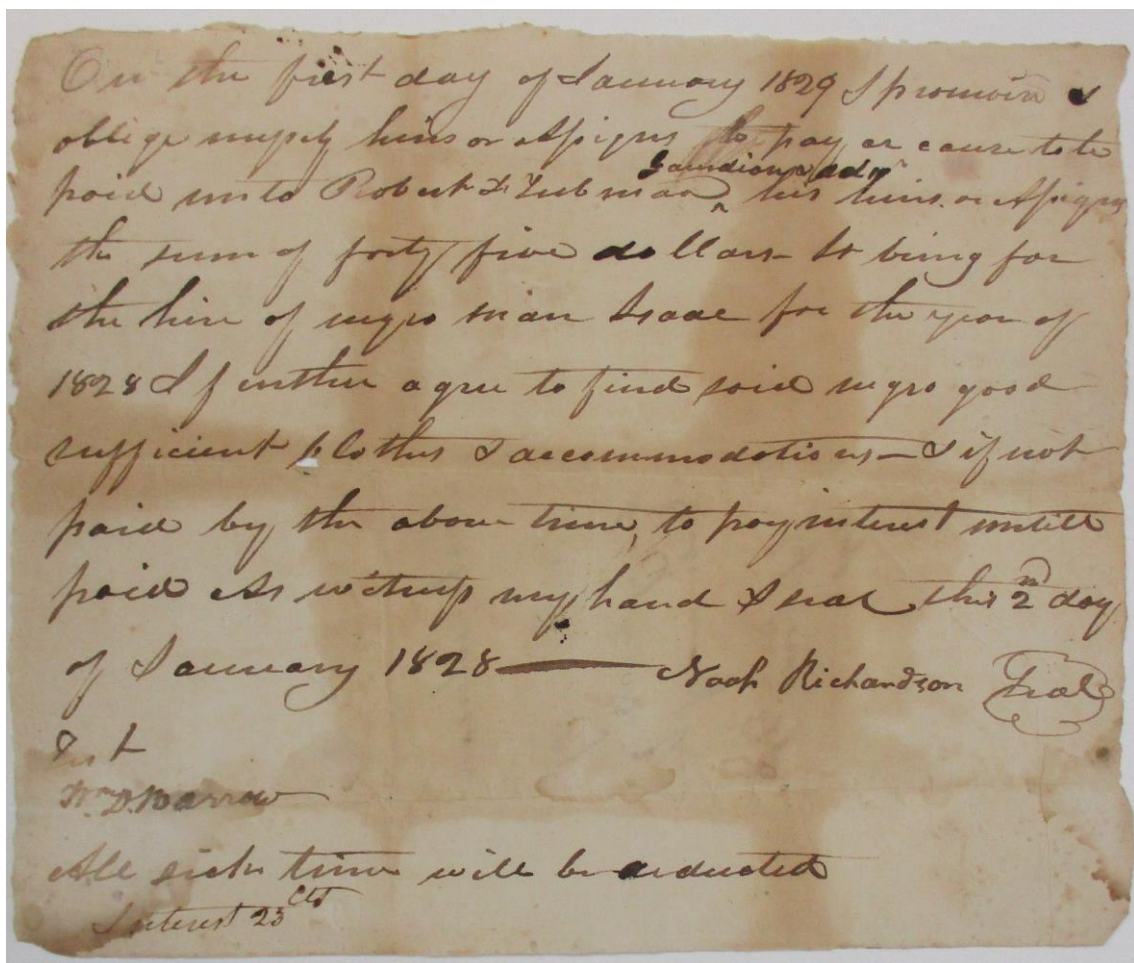 On the first day of January 1829 I promise &
oblige myself heirs or Assigns to pay or cause to be
Gaurdian & adm
paid unto Robert F Tubman ^ his heirs or Assigns
the sum of forty five dollars it being for
the hire of negro man Isaac for the year of
1828 I further agree to find said negro good
sufficient Clothes & accommodations — & if not
paid by the above time, to pay interest untill
paid As witness my hand & seal this 2nd day
of January 1828 — Noah Richardson Seal
Test
Wm D. Barrow
All sick time will be deducted
Interest 23 cts